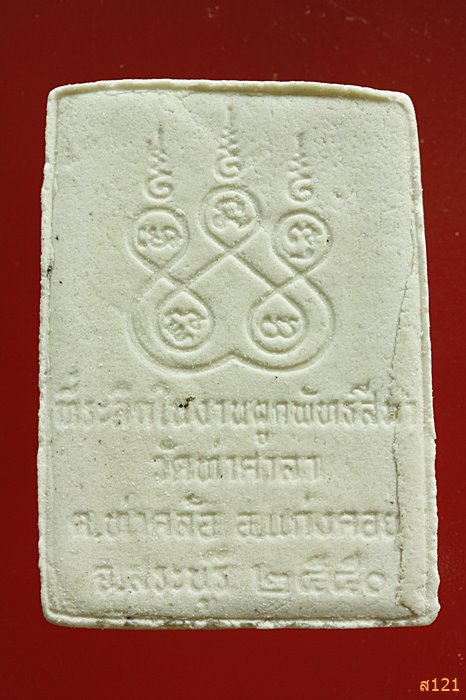 ที่ระลึกในงานผูกพัทธสีมา
วัดท่าศาลา
ต.ท่าคล้อ อ.แก่งคอย
จ.สระบุรี ๒๕๕๐
ส121